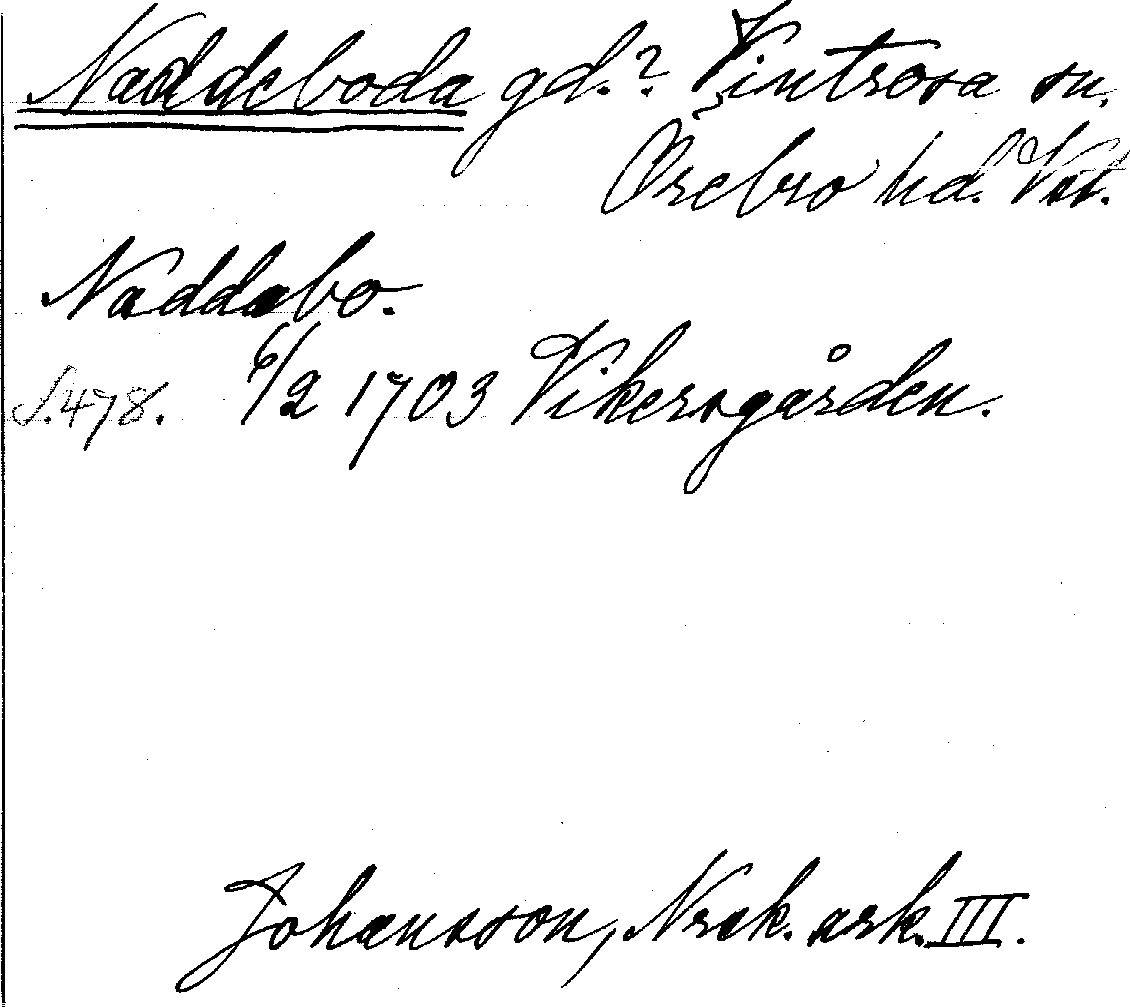 Naddeboda gd.? Vintrosa sn.
Örebro hd. Vstm.
Naddabo.
S.478. 6/2 1703 Vikersgården.
Johansson, Nrck. ark. III.